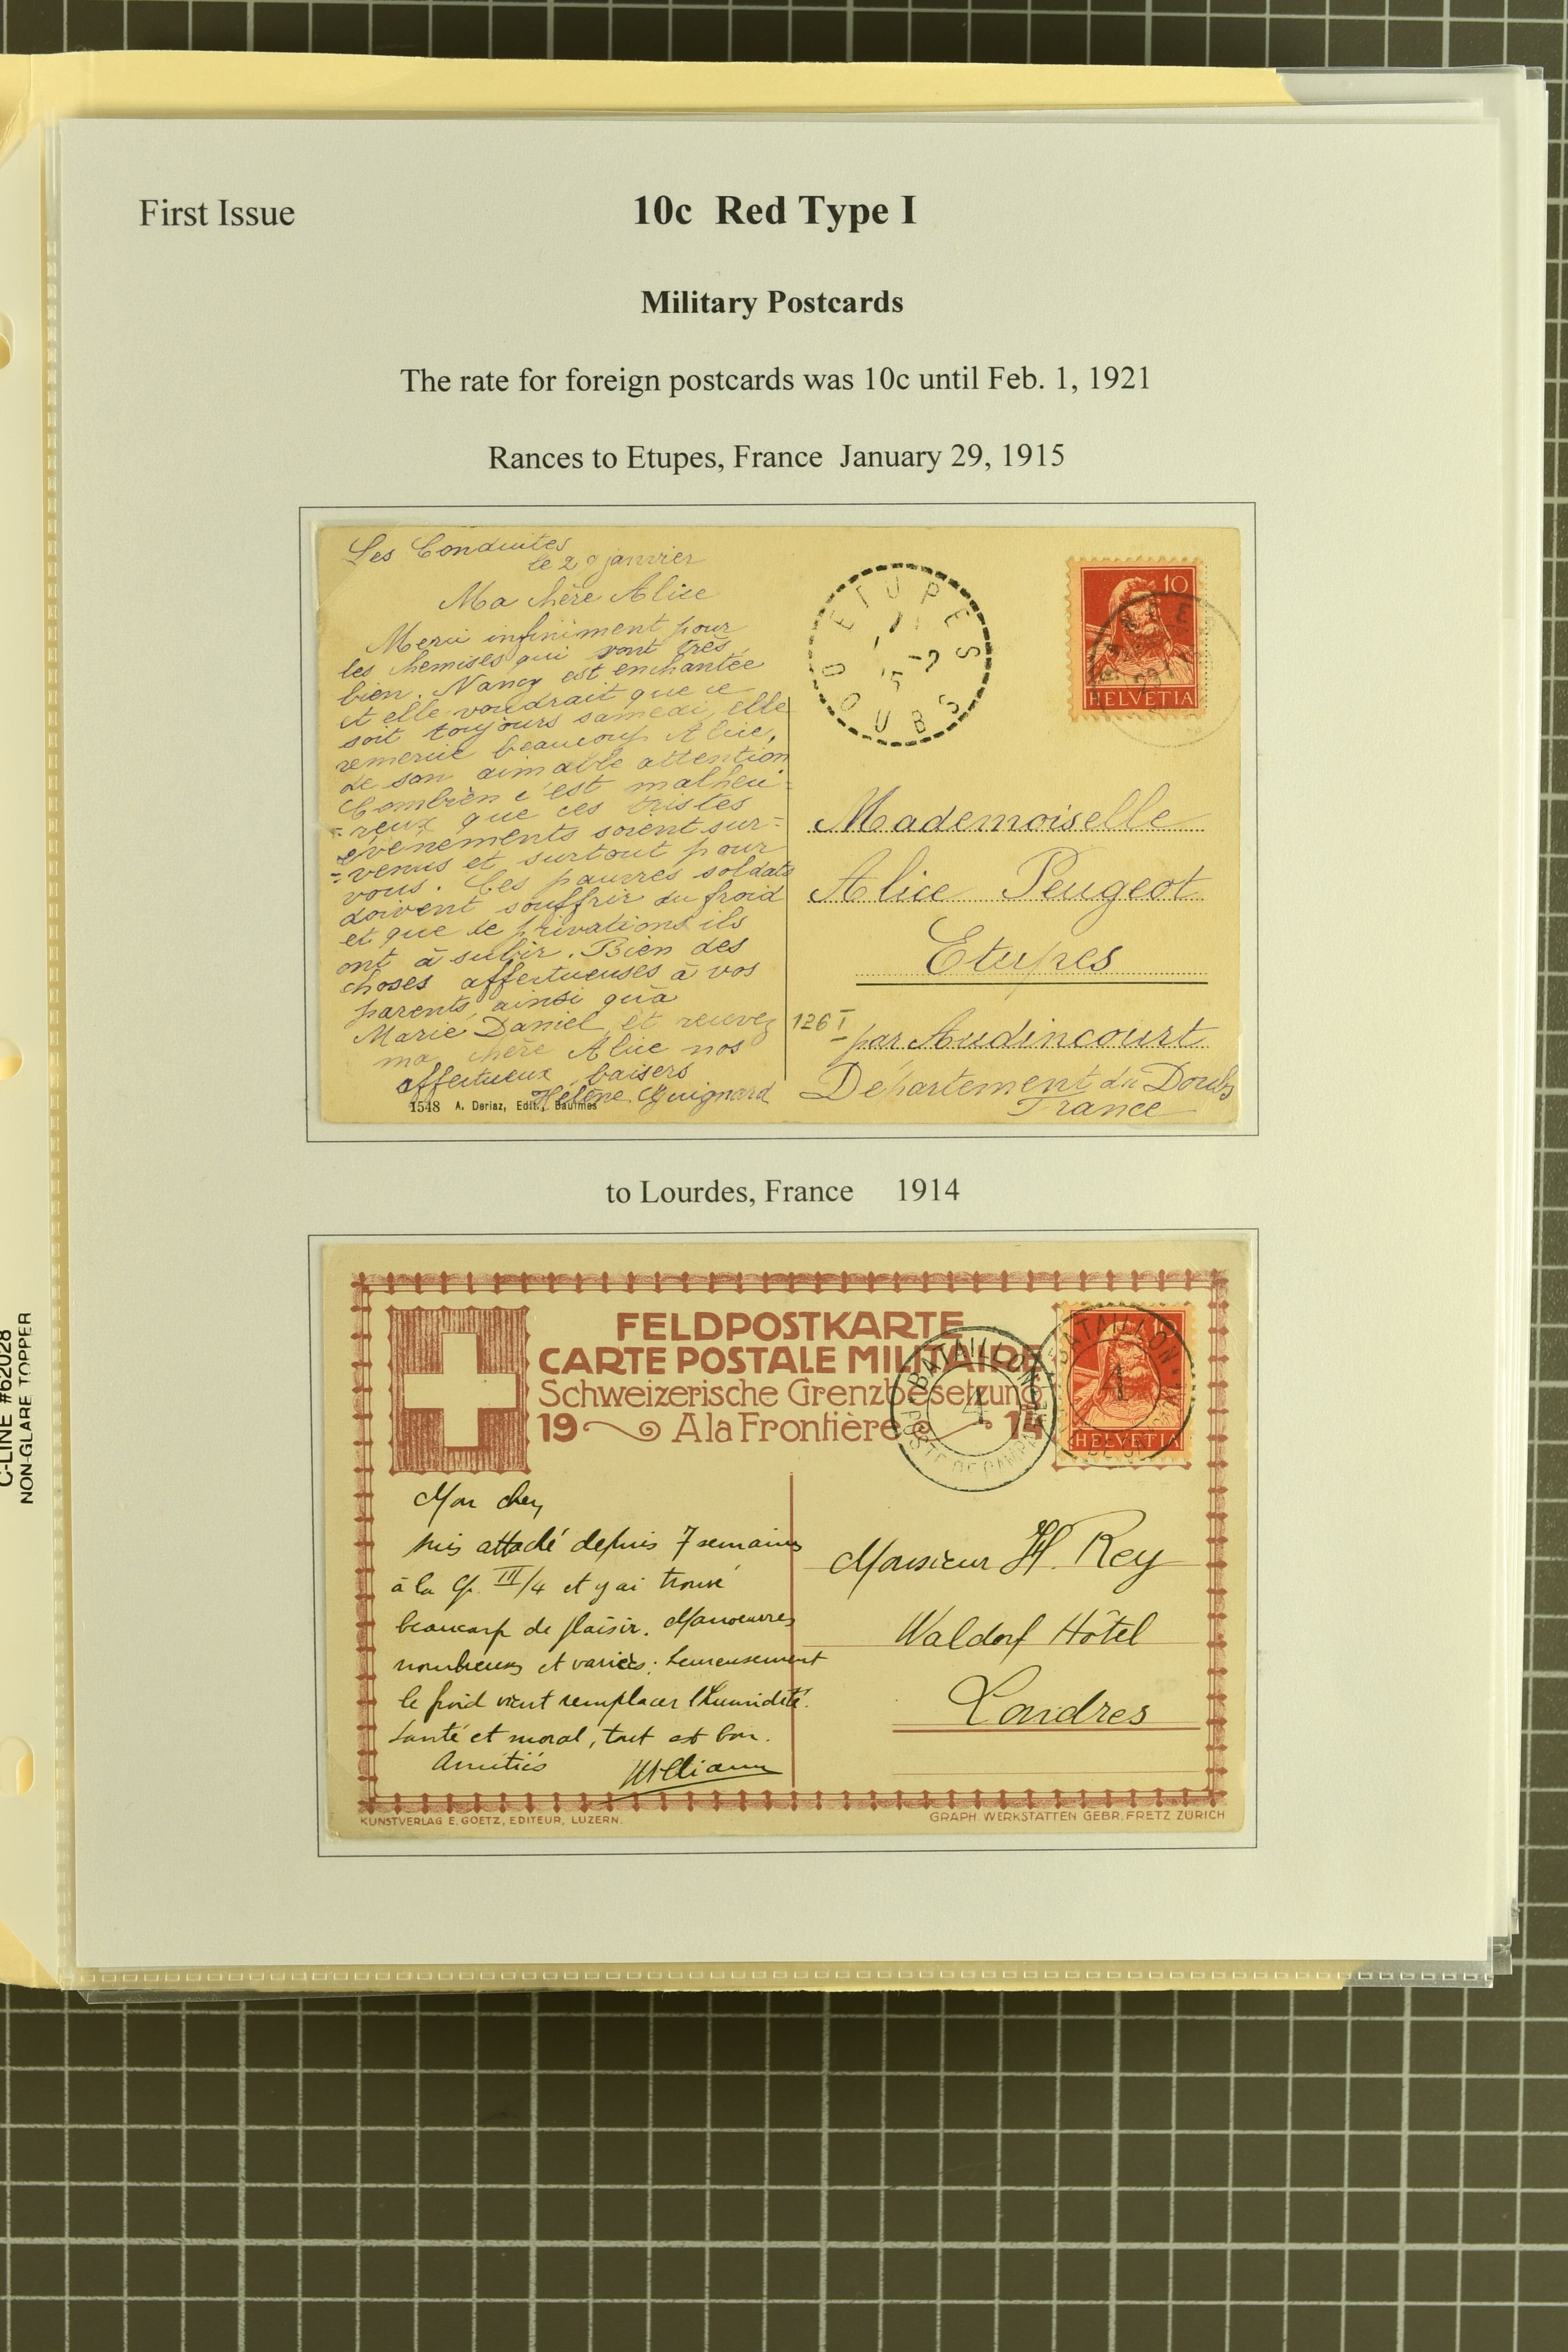 First Issue
10c Red Type I
Military Postcards
The rate for foreign postcards was 10c until Feb. 1, 1921
Rances to Etupes, France January 29, 1915
Les Conduites
le 29 janvier
Ma chère Alice
Merci infiniment pour
les chemises qui vont très
bien. Nancy est enchantée
et elle voudrait que ce
soit toujours samedi, elle
remercie beaucoup Alice,
de son aimable attention
Combien c'est malheu-
-reux que ces tristes
évènements soient sur-
-venus et surtout pour
vous. Ces pauvres soldats
doivent souffrir du froid
et que de privations ils
ont à subir. Bien des
choses affectueuses à vos
parents, ainsi qu'à
Marie Daniel, et recevez
ma chère Alice nos
affectueux baisers
Hélène Guignard
1548 A. Deriaz, Edit., Baulmes
ETUPES
DOUBS
10
HELVETIA
Mademoiselle
Alice Peugeot
Etupes
126 I
par Audincourt
Département du Doubs
France
to Lourdes, France 1914
FELDPOSTKARTE
CARTE POSTALE MILITAIRE
Schweizerische Grenzbesetzung
19 A la Frontière 14
BATAILLON
4
POSTE DE CAMPAGNE
BATAILLON
4
HELVETIA
Mon cher,
suis attaché depuis 7 semaines
à la Cp. III/4 et y ai trouvé
beaucoup de plaisir. Manoeuvres
nombreuses et variées; heureusement
le froid vient remplacer l'humidité.
Santé et moral, tout est bon.
Amitiés
William
Monsieur H. Rey
Waldorf Hôtel
Londres
KUNSTVERLAG E. GOETZ, EDITEUR, LUZERN.
GRAPH. WERKSTÄTTEN GEBR. FRETZ ZÜRICH
C-LINE #62028
NON-GLARE TOPPER